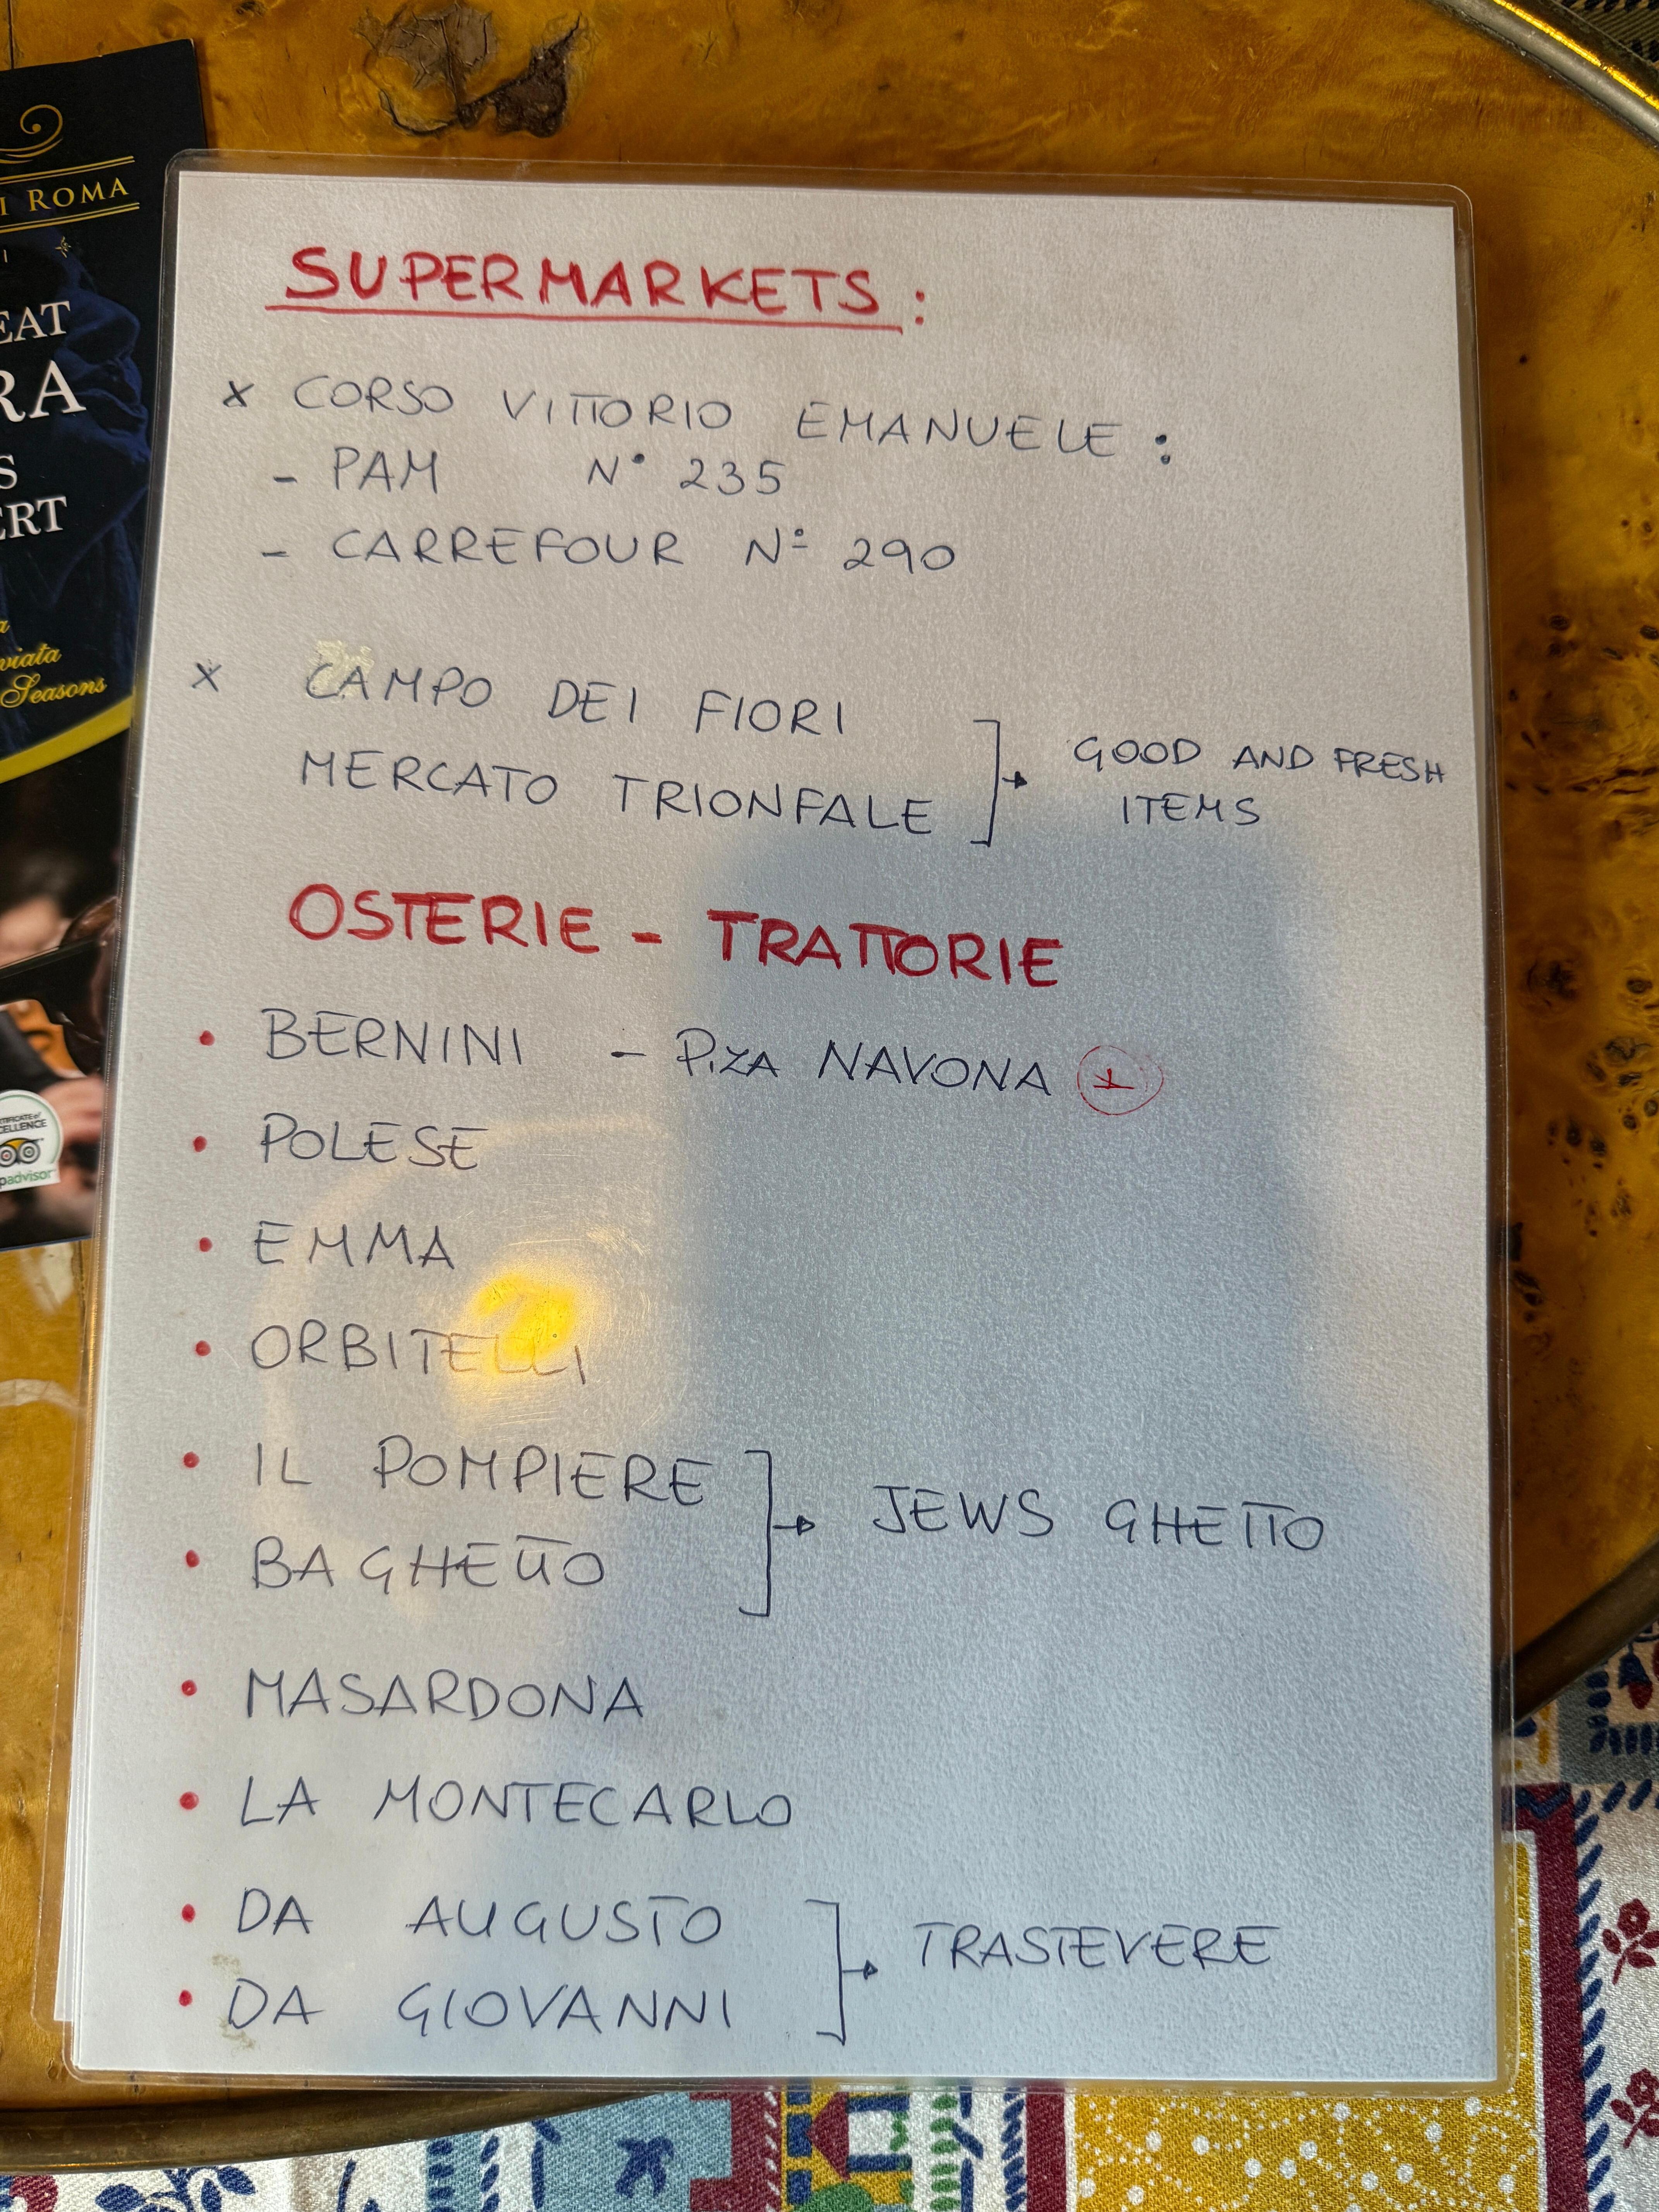 I ROMA
I
EAT
RA
S
ERT
a
viata
Seasons
TIFICATE of
CELLENCE
padvisor
SUPERMARKETS:
x CORSO VITTORIO EMANUELE:
- PAM N° 235
- CARREFOUR N° 290
x CAMPO DEI FIORI
MERCATO TRIONFALE
GOOD AND FRESH
ITEMS
OSTERIE - TRATTORIE
• BERNINI - P.ZA NAVONA
• POLESE
• EMMA
• ORBITELLI
• IL POMPIERE
• BAGHETTO
JEWS GHETTO
• MASARDONA
• LA MONTECARLO
• DA AUGUSTO
• DA GIOVANNI
TRASTEVERE